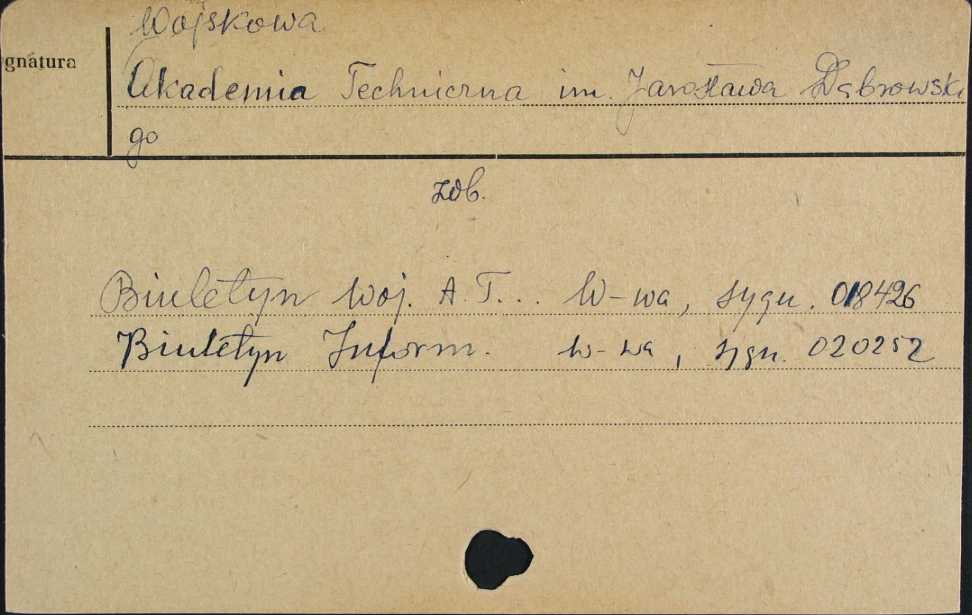 Wojskowa
gnatura
Akademia Techniczna im. Jarosława Dąbrowski
go
zob.
Biuletyn Woj. A. T... W-wa, sygn. 018426
Biuletyn Inform. W-wa, sygn. 020252